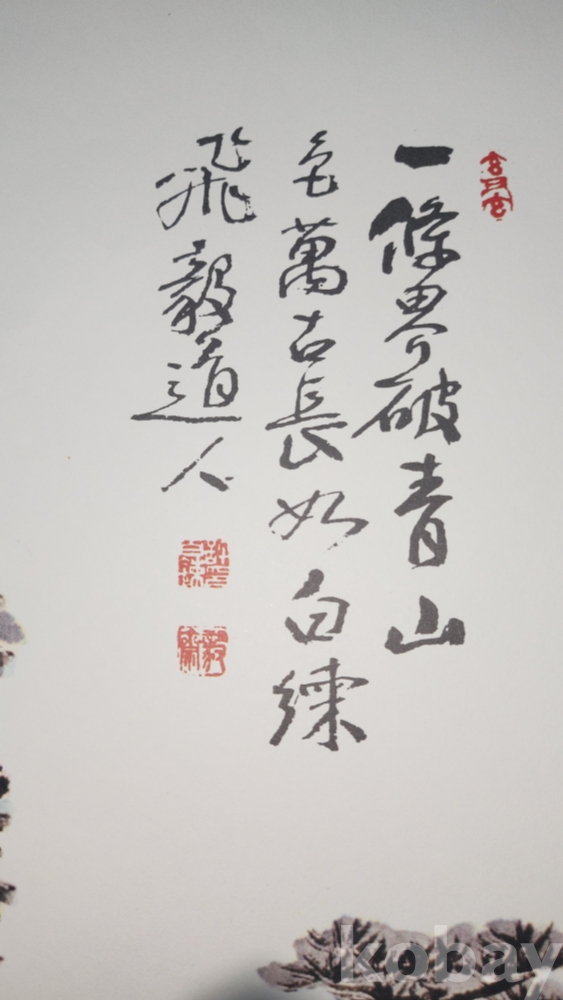 一條界破青山
色萬古長如白練
飛毅道人
kobay